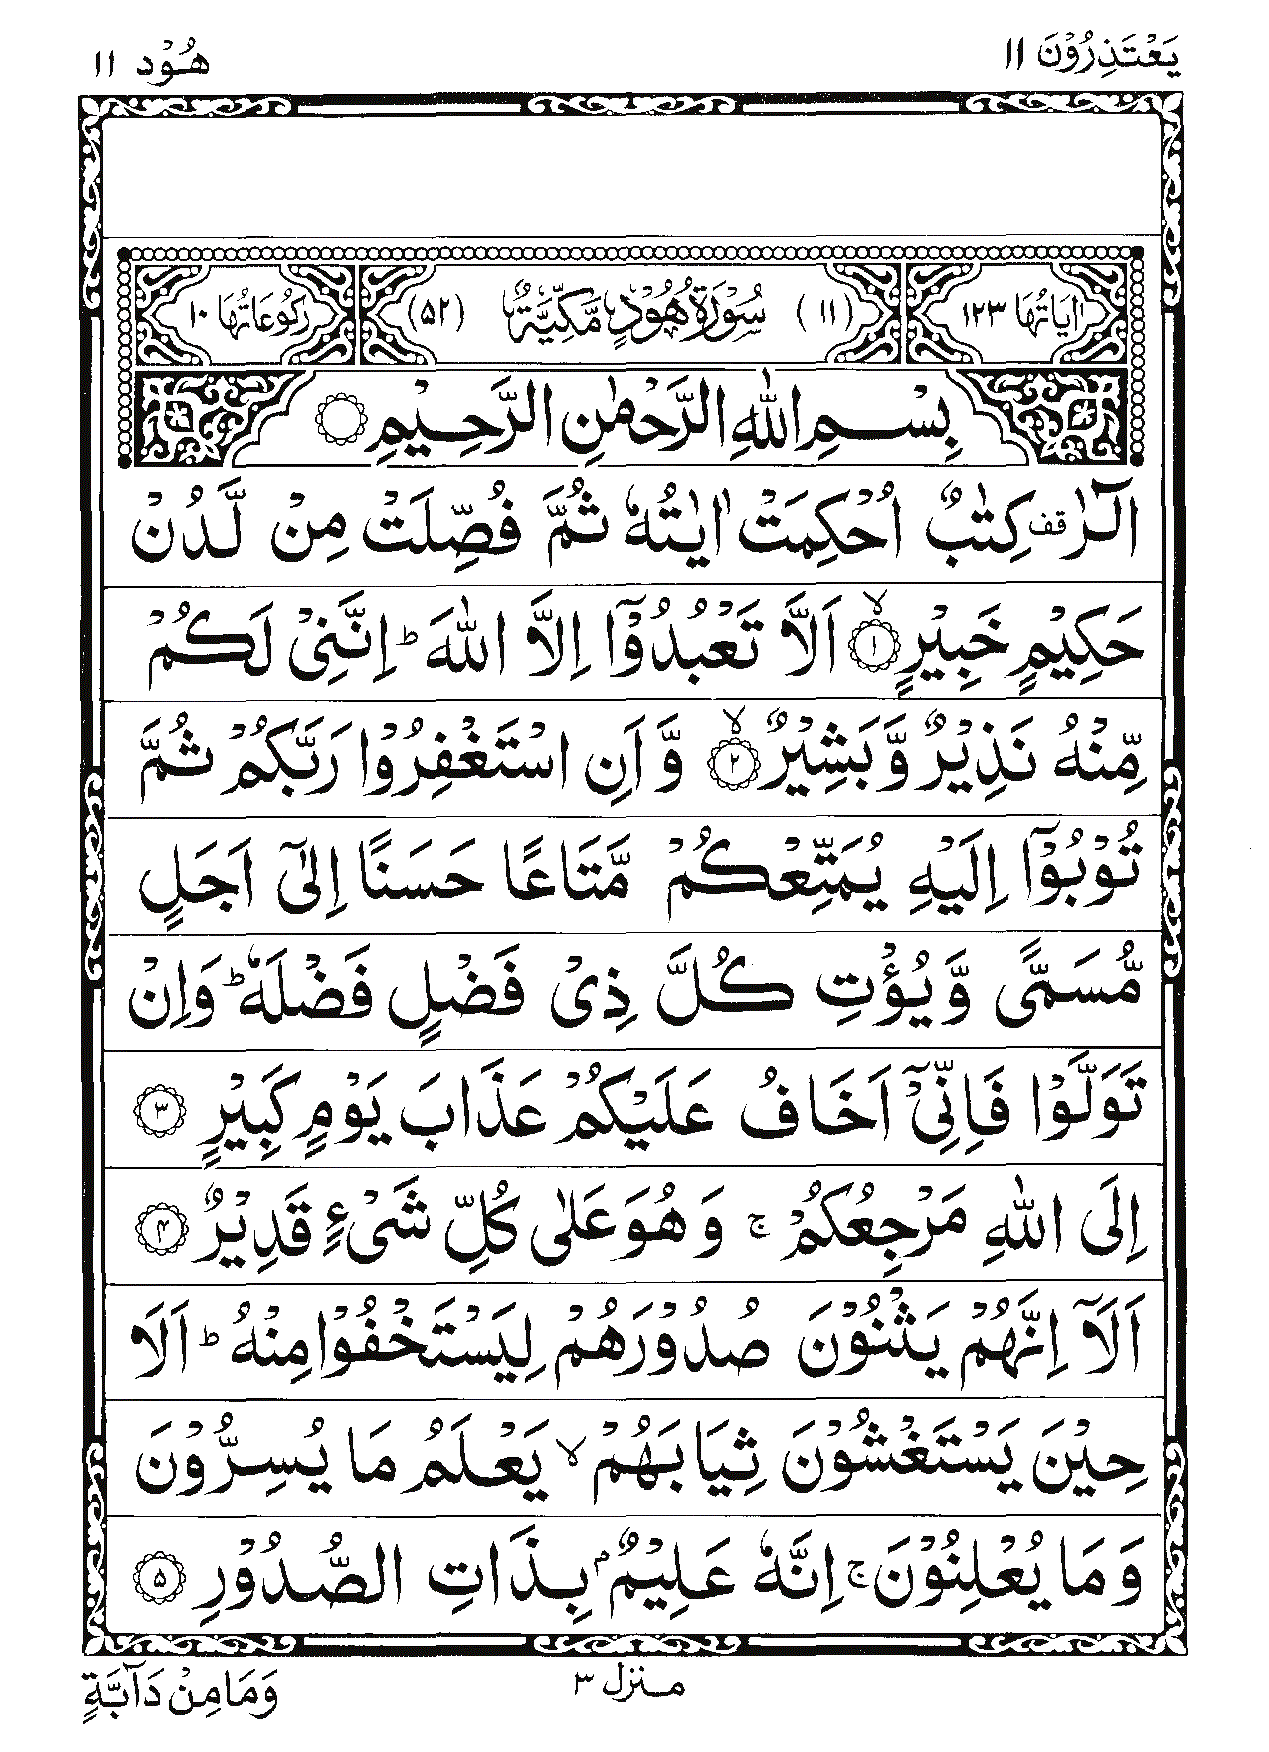 يَعْتَذِرُوْنَ ١١
هُوْد ١١
اٰيَاتُهَا ١٢٣
(١١) سُوْرَةُ هُوْدٍ مَكِّيَّةٌ (٥٢)
رُكُوْعَاتُهَا ١٠
بِسْمِ اللّٰهِ الرَّحْمٰنِ الرَّحِيْمِ ۝
الٓرٰ ۫ كِتٰبٌ اُحْكِمَتْ اٰيٰتُهٗ ثُمَّ فُصِّلَتْ مِنْ لَّدُنْ
حَكِيْمٍ خَبِيْرٍ ۙ﴿۱﴾ اَلَّا تَعْبُدُوْۤا اِلَّا اللّٰهَ ؕ اِنَّنِیْ لَكُمْ
مِّنْهُ نَذِيْرٌ وَّبَشِيْرٌ ۙ﴿۲﴾ وَّ اَنِ اسْتَغْفِرُوْا رَبَّكُمْ ثُمَّ
تُوْبُوْۤا اِلَيْهِ يُمَتِّعْكُمْ مَّتَاعًا حَسَنًا اِلٰۤی اَجَلٍ
مُّسَمًّی وَّ يُؤْتِ كُلَّ ذِیْ فَضْلٍ فَضْلَهٗ ؕ وَاِنْ
تَوَلَّوْا فَاِنِّیْۤ اَخَافُ عَلَيْكُمْ عَذَابَ يَوْمٍ كَبِيْرٍ ﴿۳﴾
اِلَی اللّٰهِ مَرْجِعُكُمْ ۚ وَ هُوَ عَلٰی كُلِّ شَیْءٍ قَدِيْرٌ ﴿۴﴾
اَلَاۤ اِنَّهُمْ يَثْنُوْنَ صُدُوْرَهُمْ لِيَسْتَخْفُوْا مِنْهُ ؕ اَلَا
حِيْنَ يَسْتَغْشُوْنَ ثِيَابَهُمْ ۙ يَعْلَمُ مَا يُسِرُّوْنَ
وَ مَا يُعْلِنُوْنَ ۚ اِنَّهٗ عَلِيْمٌۢ بِذَاتِ الصُّدُوْرِ ﴿۵﴾
منزل ٣
وَمَا مِنْ دَآبَّةٍ